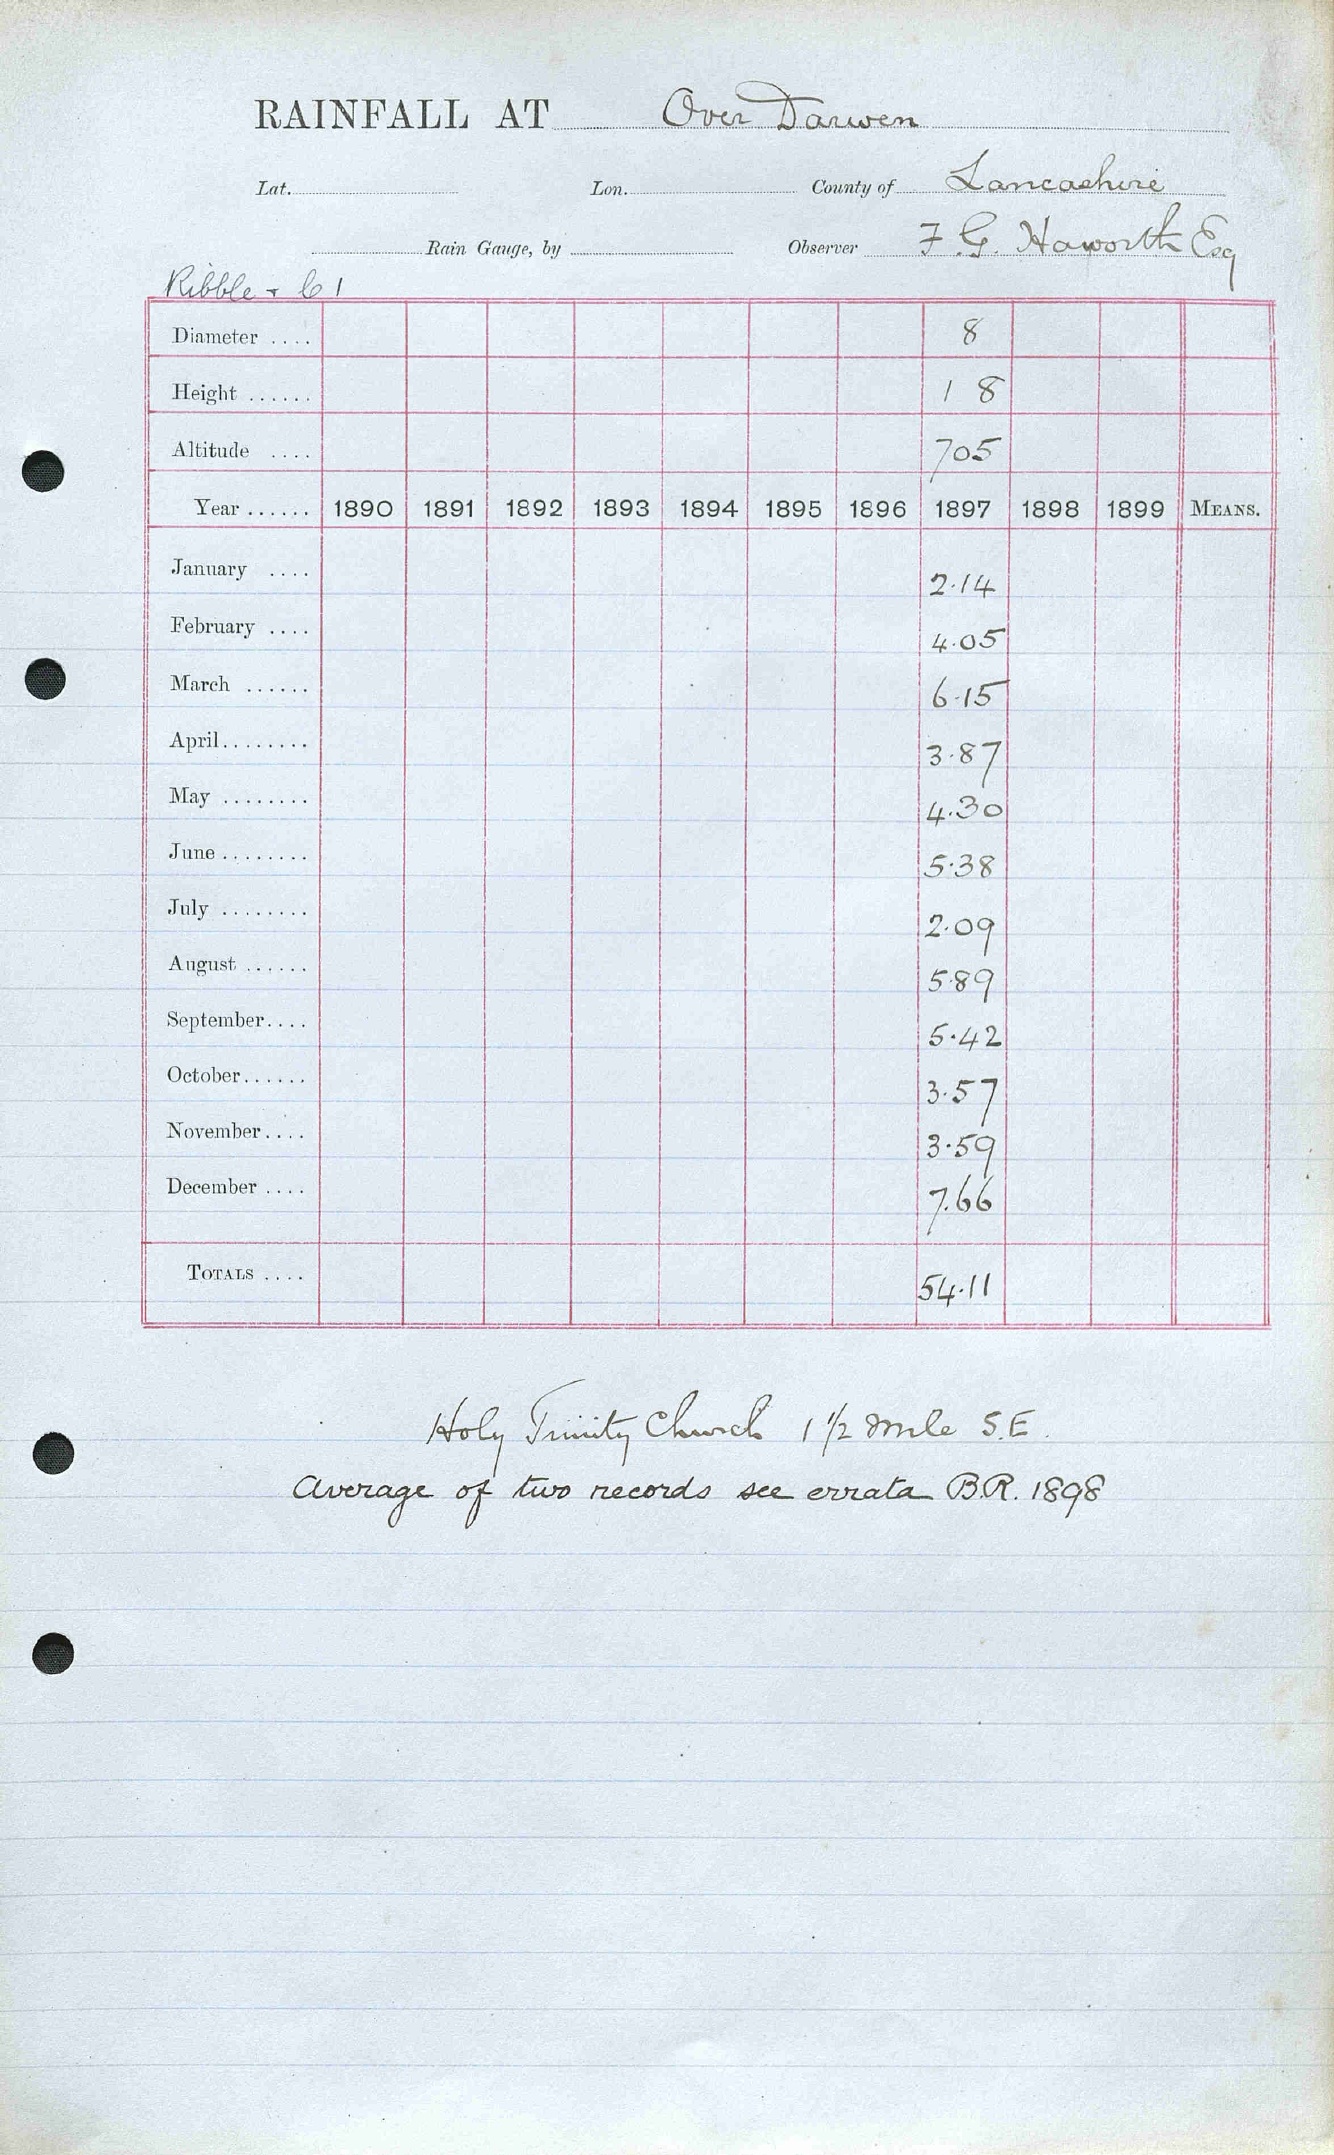 RAINFALL AT Over Darwen
Lat. Lon. County of Lancashire
Rain Gauge, by Observer F. G. Haworth Esq
Ribble
Diameter .... 8
Height ...... 1 8
Altitude .... 705
Year ...... 1890 1891 1892 1893 1894 1895 1896 1897 1898 1899 MEANS.
January .... 2.14
February .... 4.05
March ...... 6.15
April........ 3.87
May ........ 4.30
June ........ 5.38
July ........ 2.09
August ...... 5.89
September.... 5.42
October...... 3.57
November.... 3.59
December .... 7.66
TOTALS .... 54.11
Holy Trinity Church 1 1/2 mile S.E.
Average of two records see errata B.R. 1898